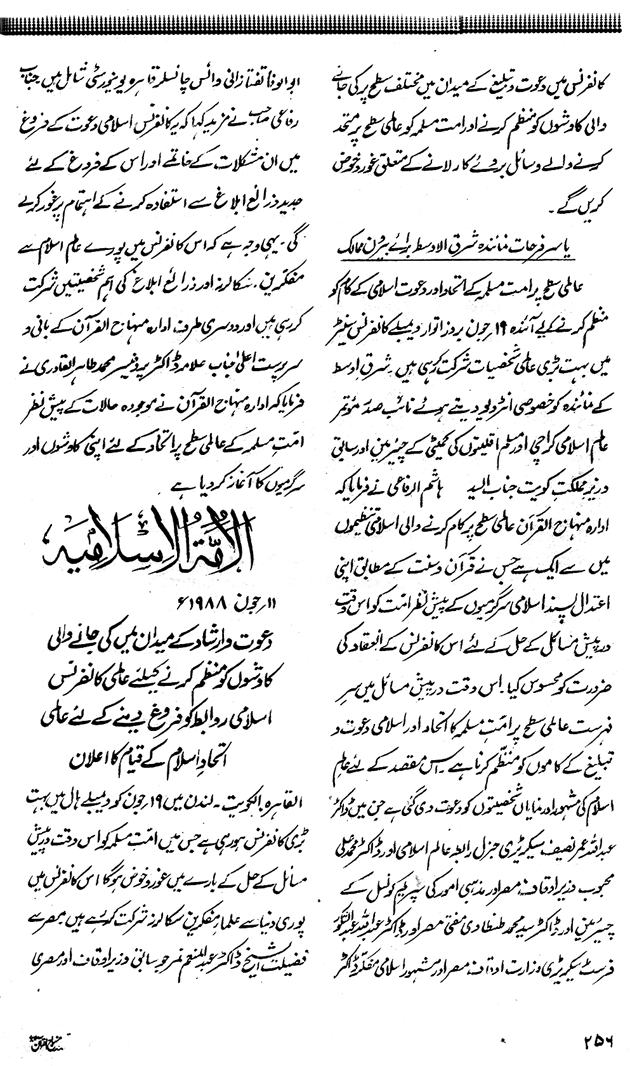 کانفرنس میں دعوت و تبلیغ کے میدان میں مختلف سطح پر کی جانے
والی کاوشوں کو منظم کرنے اور امت مسلمہ کو عالمی سطح پر متحد
کرنے والے وسائل بروئے کار لانے کے متعلق غور و خوض
کریں گے۔
یاسر فرحات نمائندہ شرق الاوسط برائے بیرون ممالک
عالمی سطح پر امت مسلمہ کے اتحاد اور دعوت اسلامی کے کام کو
منظم کرنے کیلئے آئندہ ۱۹ جون بروز اتوار ویمبلے کانفرنس سینٹر
میں بہت بڑی عالمی شخصیات شرکت کر رہی ہیں۔ شرق اوسط
کے نمائندہ کو خصوصی انٹرویو دیتے ہوئے نائب صدر مؤتمر
عالم اسلامی کراچی اور مسلم اقلیتوں کی کمیٹی کے چیئرمین اور سابق
وزیر مملکت کویت جناب السید ہاشم الرفاعی نے فرمایا کہ
ادارہ منہاج القرآن عالمی سطح پر کام کرنے والی اسلامی تنظیموں
میں سے ایک ہے جس نے قرآن و سنت کے مطابق اپنی
اعتدال پسند اسلامی سرگرمیوں کے پیش نظر امت کو اس وقت
درپیش مسائل کے حل کے لئے اس کانفرنس کے انعقاد کی
ضرورت کو محسوس کیا۔ اس وقت درپیش مسائل میں سر
فہرست عالمی سطح پر امت مسلمہ کا اتحاد اور اسلامی دعوت و
تبلیغ کے کاموں کو منظم کرنا ہے۔ اس مقصد کے لئے عالم
اسلام کی مشہور اور نمایاں شخصیتوں کو دعوت دی گئی ہے جن میں ڈاکٹر
عبداللہ عمر نصیف سیکریٹری جنرل رابطہ عالم اسلامی اور ڈاکٹر محمد علی
محجوب وزیر اوقاف مصر اور مذہبی امور کی سپریم کونسل کے
چیئرمین اور ڈاکٹر سید محمد طنطاوی مفتی مصر اور ڈاکٹر عبداللہ عبدالشکور
فرسٹ سیکریٹری وزارت اوقاف مصر اور مشہور اسلامی مفکر ڈاکٹر
ابو الوفا تفتازانی وائس چانسلر قاہرہ یونیورسٹی شامل ہیں جناب
رفاعی صاحب نے مزید کہا کہ یہ کانفرنس اسلامی دعوت کے فروغ
میں ان مشکلات کے خاتمے اور اس کے فروغ کے لئے
جدید ذرائع ابلاغ سے استفادہ کرنے کے اہتمام پر غور کرے
گی۔ یہی وجہ ہے کہ اس کانفرنس میں پورے عالم اسلام سے
مفکرین، سکالرز اور ذرائع ابلاغ کی اہم شخصیتیں شرکت
کر رہی ہیں اور دوسری طرف ادارہ منہاج القرآن کے بانی و
سرپرست اعلیٰ جناب علامہ ڈاکٹر پروفیسر محمد طاہر القادری نے
فرمایا کہ ادارہ منہاج القرآن نے موجودہ حالات کے پیش نظر
امت مسلمہ کے عالمی سطح پر اتحاد کے لئے اپنی کاوشوں اور
سرگرمیوں کا آغاز کر دیا ہے
الأمة الإسلامیہ
۱۱ر جون ۱۹۸۸ء
دعوت و ارشاد کے میدان میں کی جانے والی
کاوشوں کو منظم کرنے کیلئے عالمی کانفرنس
اسلامی روابط کو فروغ دینے کے لئے عالمی
اتحادِ اسلام کے قیام کا اعلان
القاہرہ الکویت۔ لندن میں ۱۹ر جون کو ویمبلے ہال میں بہت
بڑی کانفرنس ہو رہی ہے جس میں امت مسلمہ کو اس وقت درپیش
مسائل کے حل کے بارے میں غور و خوض ہوگا اس کانفرنس میں
پوری دنیا سے علماء مفکرین سکالرز شرکت کر رہے ہیں مصر سے
فضیلت الشیخ ڈاکٹر عبدالمنعم نمر جو سابق وزیر اوقاف اور مصری
۲۵۶